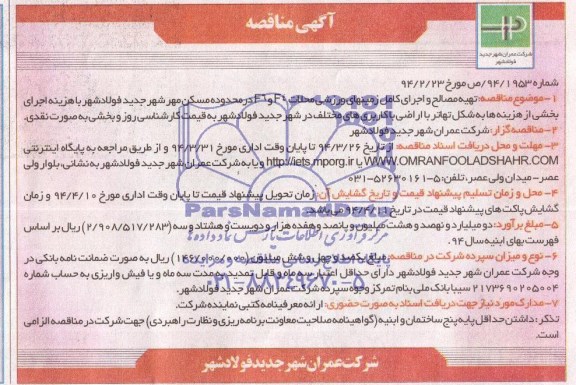 آگهی مناقصه
شرکت عمران شهر جدید
فولادشهر
شماره ۹۴/۱۹۵۳/ص مورخ ۹۴/۲/۲۳
۱- موضوع مناقصه: تهیه مصالح و اجرای کامل زمینهای ورزشی محلات F۴ و F۶ در محدوده مسکن مهر شهر جدید فولادشهر با هزینه اجرای
بخشی از هزینه ها به شکل تهاتر با اراضی با کاربری های مختلف در شهر جدید فولادشهر به قیمت کارشناسی روز و بخشی به صورت نقدی.
۲- مناقصه گزار: شرکت عمران شهر جدید فولادشهر
۳- مهلت و محل دریافت اسناد مناقصه: از تاریخ ۹۴/۳/۲۶ تا پایان وقت اداری مورخ ۹۴/۳/۳۱ و از طریق مراجعه به پایگاه اینترنتی
WWW.OMRANFOOLADSHAHR.COM یا http://iets.mporg.ir و یا به شرکت عمران شهر جدید فولادشهر به نشانی: بلوار ولی
عصر- میدان ولی عصر، تلفن: ۵-۵۲۶۳۰۱۶۱-۰۳۱
۴- محل و زمان تسلیم پیشنهاد قیمت و تاریخ گشایش آن: زمان تحویل پیشنهاد قیمت تا پایان وقت اداری مورخ ۹۴/۴/۱۰ و زمان
گشایش پاکت های پیشنهاد قیمت در تاریخ ۹۴/۴/۱۱ می باشد.
۵- مبلغ برآورد: دو میلیارد و نهصد و هشت میلیون و پانصد و هفده هزار و دویست و هشتاد و سه (۲/۹۰۸/۵۱۷/۲۸۳) ریال بر اساس
فهرست بهای ابنیه سال ۹۴.
۶- نوع و میزان سپرده شرکت در مناقصه: مبلغ یکصد و چهل و شش میلیون (۱۴۶/۰۰۰/۰۰۰) ریال به صورت ضمانت نامه بانکی در
وجه شرکت عمران شهر جدید فولادشهر دارای حداقل اعتبار سه ماه و قابل تمدید به مدت سه ماه و یا فیش واریزی به حساب شماره
۲۱۷۳۶۹۰۲۰۵۰۰۴ سیبا بانک ملی بنام تمرکز وجوه سپرده شرکت عمران شهر جدید فولادشهر.
۷- مدارک مورد نیاز جهت دریافت اسناد به صورت حضوری: ارائه معرفینامه کتبی نماینده شرکت.
تذکر: داشتن حداقل پایه پنج ساختمان و ابنیه (گواهینامه صلاحیت معاونت برنامه ریزی و نظارت راهبردی) جهت شرکت در مناقصه الزامی
است.
شرکت عمران شهر جدید فولادشهر
ParsNamadData
مرکز فرآوری اطلاعات پارس نماد داده ها
۰۲۱-۸۸۳۴۹۶۷۰-۵